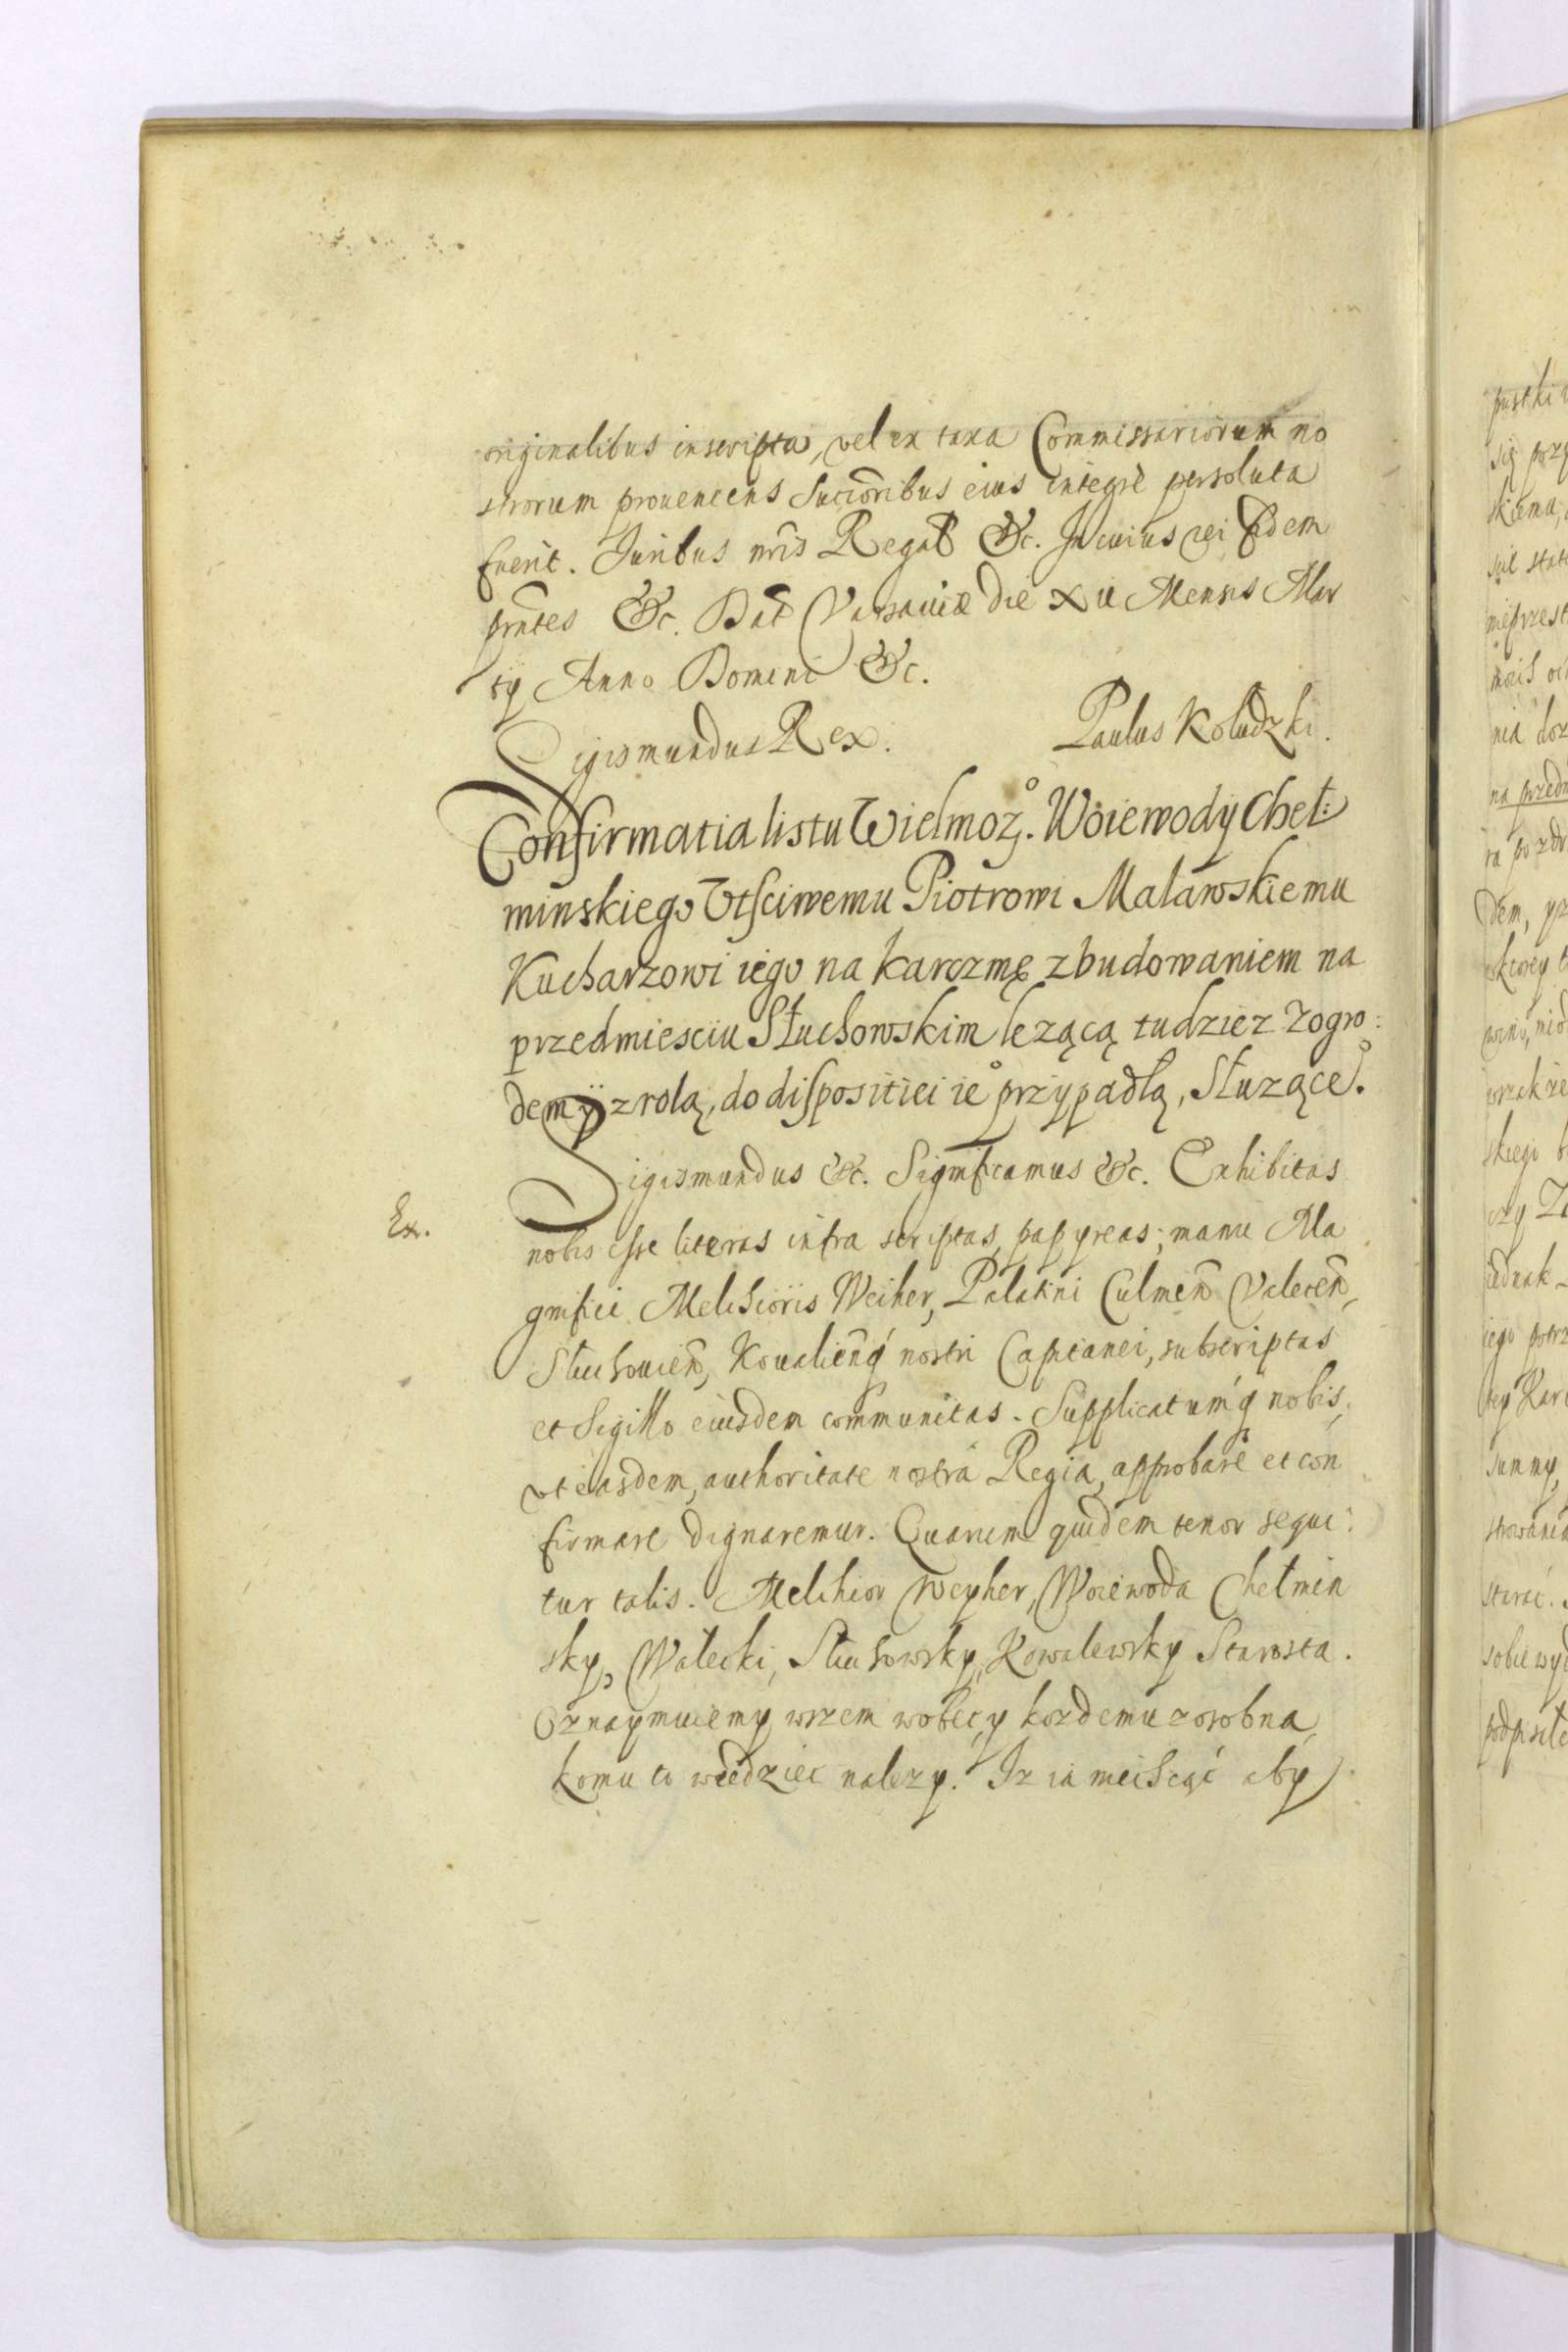 originalibus inscripta, vel ex taxa Commissariorum no
strorum proueniens Succōribus eius integrè persoluta
fuerit. Iuribus nrīs Regal &c. In cuius rei fidem
prn̄tes &c. Dat Varsauiæ die XII Mensis Mar
tij Anno Domini &c.
Sigismundus Rex. Paulus Koludzki.
Confirmatia listu Wielmożº. Woiewody Cheł:
minskiego Vtsciwemu Piotrowi Malawskiemu
Kucharzowi iego na karczmę z budowaniem na
przedmiesciu Słuchowskim lezącą tudziez z ogro:
dem ÿ z rolą, do dispositiei ieº przypadłą, Słuząceº.
Sigismundus &c. Significamus &c. Exhibitas
Ex.
nobis esse literas infra scriptas papyreas, manu Ma
gnifici Melchioris Weiher, Palatini Culmen̄ Valecen̄,
Sluchouien̄, Koualien̄q́ nostri Capitanei, subscriptas
et Sigillo eiusdem communitas. Supplicatumq́ nobis,
vt easdem, authoritate nostrá Regia, approbare et con
firmare dignaremur. Quarum quidem tenor sequi:
tur talis. Melchior Weyher, Woiewoda Chełmin
sky, Wałecki, Sluchowsky, Kowalewsky Starosta.
Oznaymuiemy wszem wobec, y kozdemu zosobna,
komu to wiedziec nalezy. Iz ia meiScąć aby
pustki
się przy
skiemu,
nieprzest
nia doz
na przedm
ra po zdr
dem, yz
ktorey
wino, miod
skiego
czy
iednak
iego potrz
tey Kar
summy,
starac.
sobie wyd
podpisałe